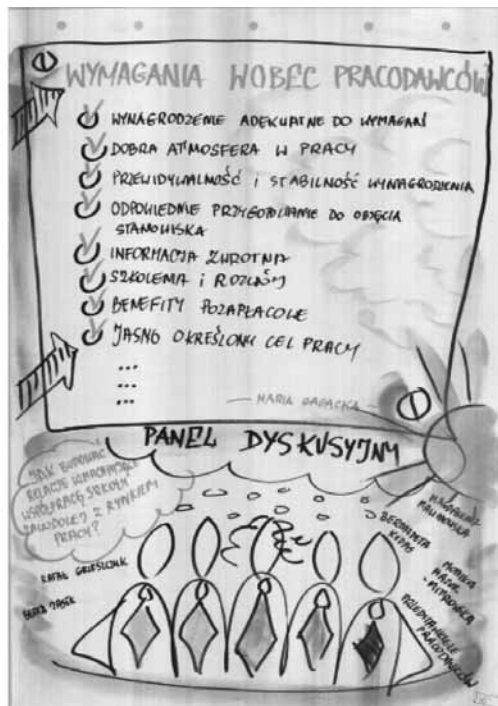 WYMAGANIA WOBEC PRACODAWCÓW
WYNAGRODZENIE ADEKWATNE DO WYMAGAŃ
DOBRA ATMOSFERA W PRACY
PRZEWIDYWALNOŚĆ I STABILNOŚĆ WYNAGRODZENIA
ODPOWIEDNIE PRZYGOTOWANIE DO OBJĘCIA
STANOWISKA
INFORMACJA ZWROTNA
SZKOLENIA I ROZWÓJ
BENEFITY POZAPŁACOWE
JASNO OKREŚLONY CEL PRACY
...
...
...
MARIA
PANEL DYSKUSYJNY
JAK BUDOWAĆ
RELACJE WZMACNIAJĄCE
WSPÓŁPRACĘ SZKOŁY
ZAWODOWEJ Z RYNKIEM
PRACY?
RAFAŁ
BEATA
MAGDALENA
MALINOWSKA
BERNADETA
MONIKA
PRZEDSTAWICIELE
PRACODAWCÓW